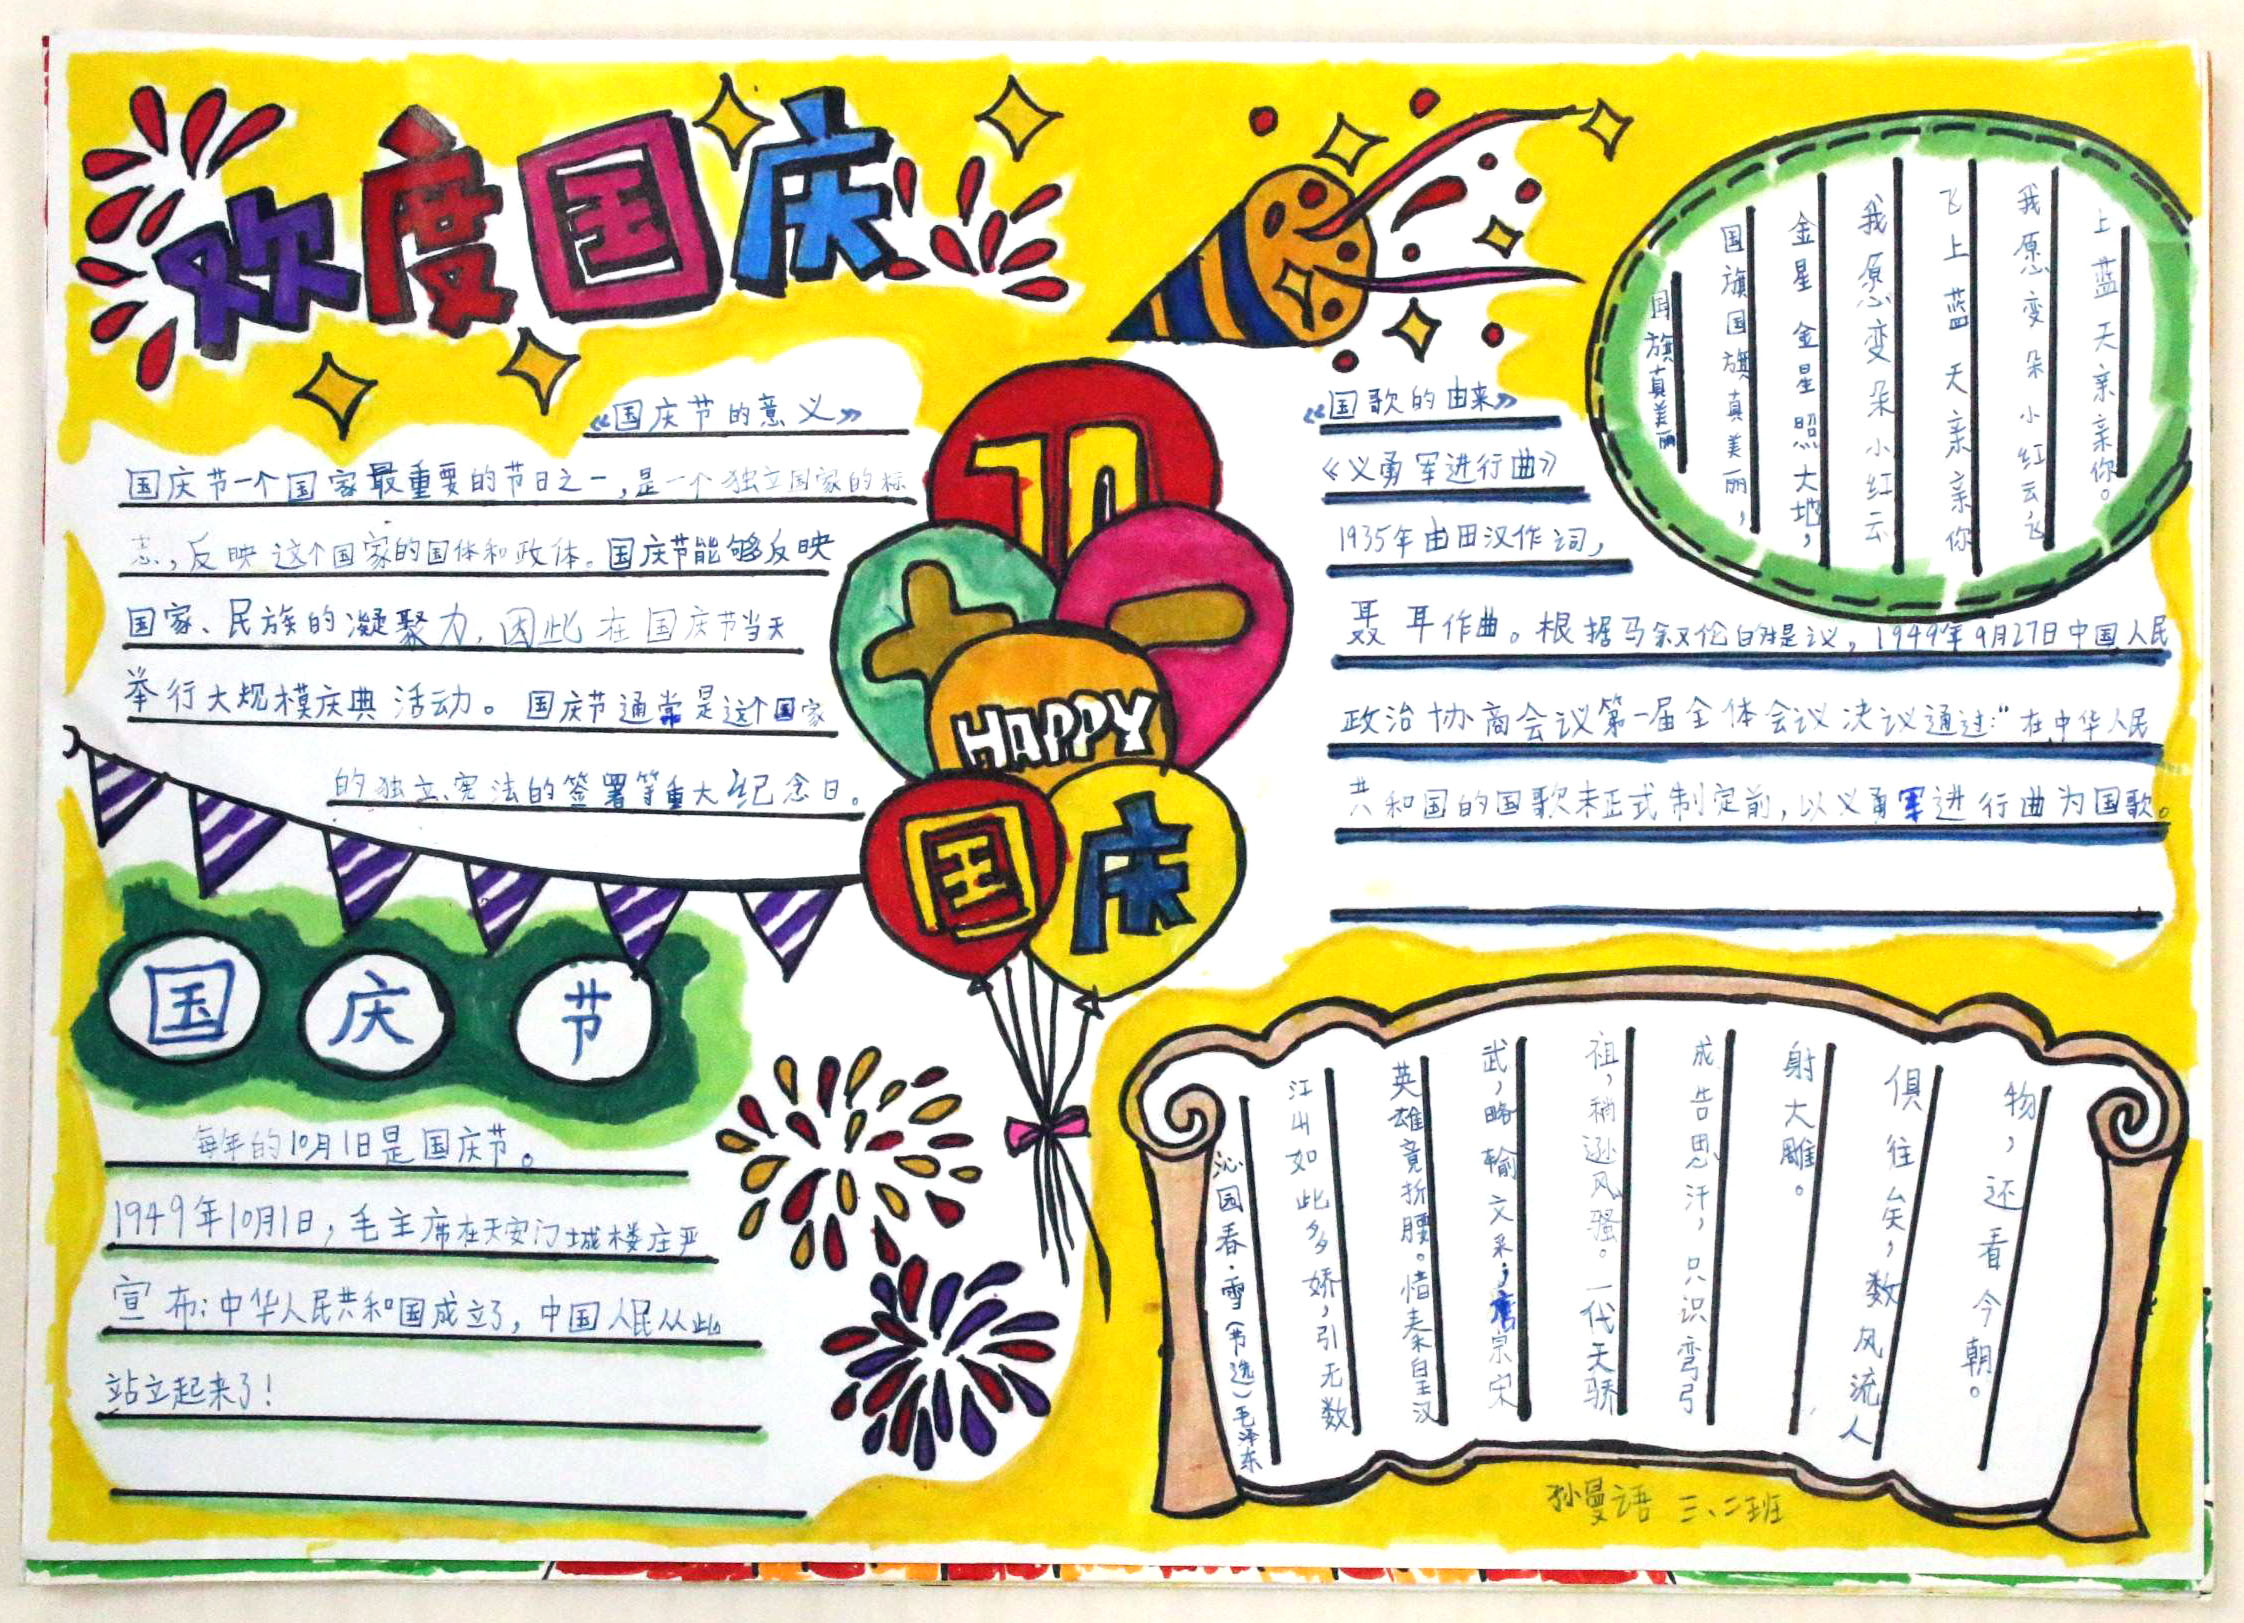 欢度国庆
《国庆节的意义》
国庆节一个国家最重要的节日之一,是一个独立国家的标
志,反映这个国家的国体和政体。国庆节能够反映
国家、民族的凝聚力,因此在国庆节当天
举行大规模庆典活动。国庆节通常是这个国家
的独立、宪法的签署等重大纪念日。
70
十一
HAPPY
国庆
《国歌的由来》
《义勇军进行曲》
1935年由田汉作词,
聂耳作曲。根据马叙伦的提议,1949年9月27日中国人民
政治协商会议第一届全体会议决议通过:"在中华人民
共和国的国歌未正式制定前,以义勇军进行曲为国歌。
国旗真美丽
国旗国旗真美丽,
金星金星照大地,
我愿变朵小红云
飞上蓝天亲亲你
我愿变朵小红云,飞
上蓝天亲亲你。
国庆节
每年的10月1日是国庆节。
1949年10月1日,毛主席在天安门城楼庄严
宣布:中华人民共和国成立了,中国人民从此
站立起来了!
沁园春·雪(节选)毛泽东
江山如此多娇,引无数
英雄竟折腰。惜秦皇汉
武,略输文采;唐宗宋
祖,稍逊风骚。一代天骄
成告思汗,只识弯弓
射大雕。
俱往矣,数风流人
物,还看今朝。
孙曼语 三、二班